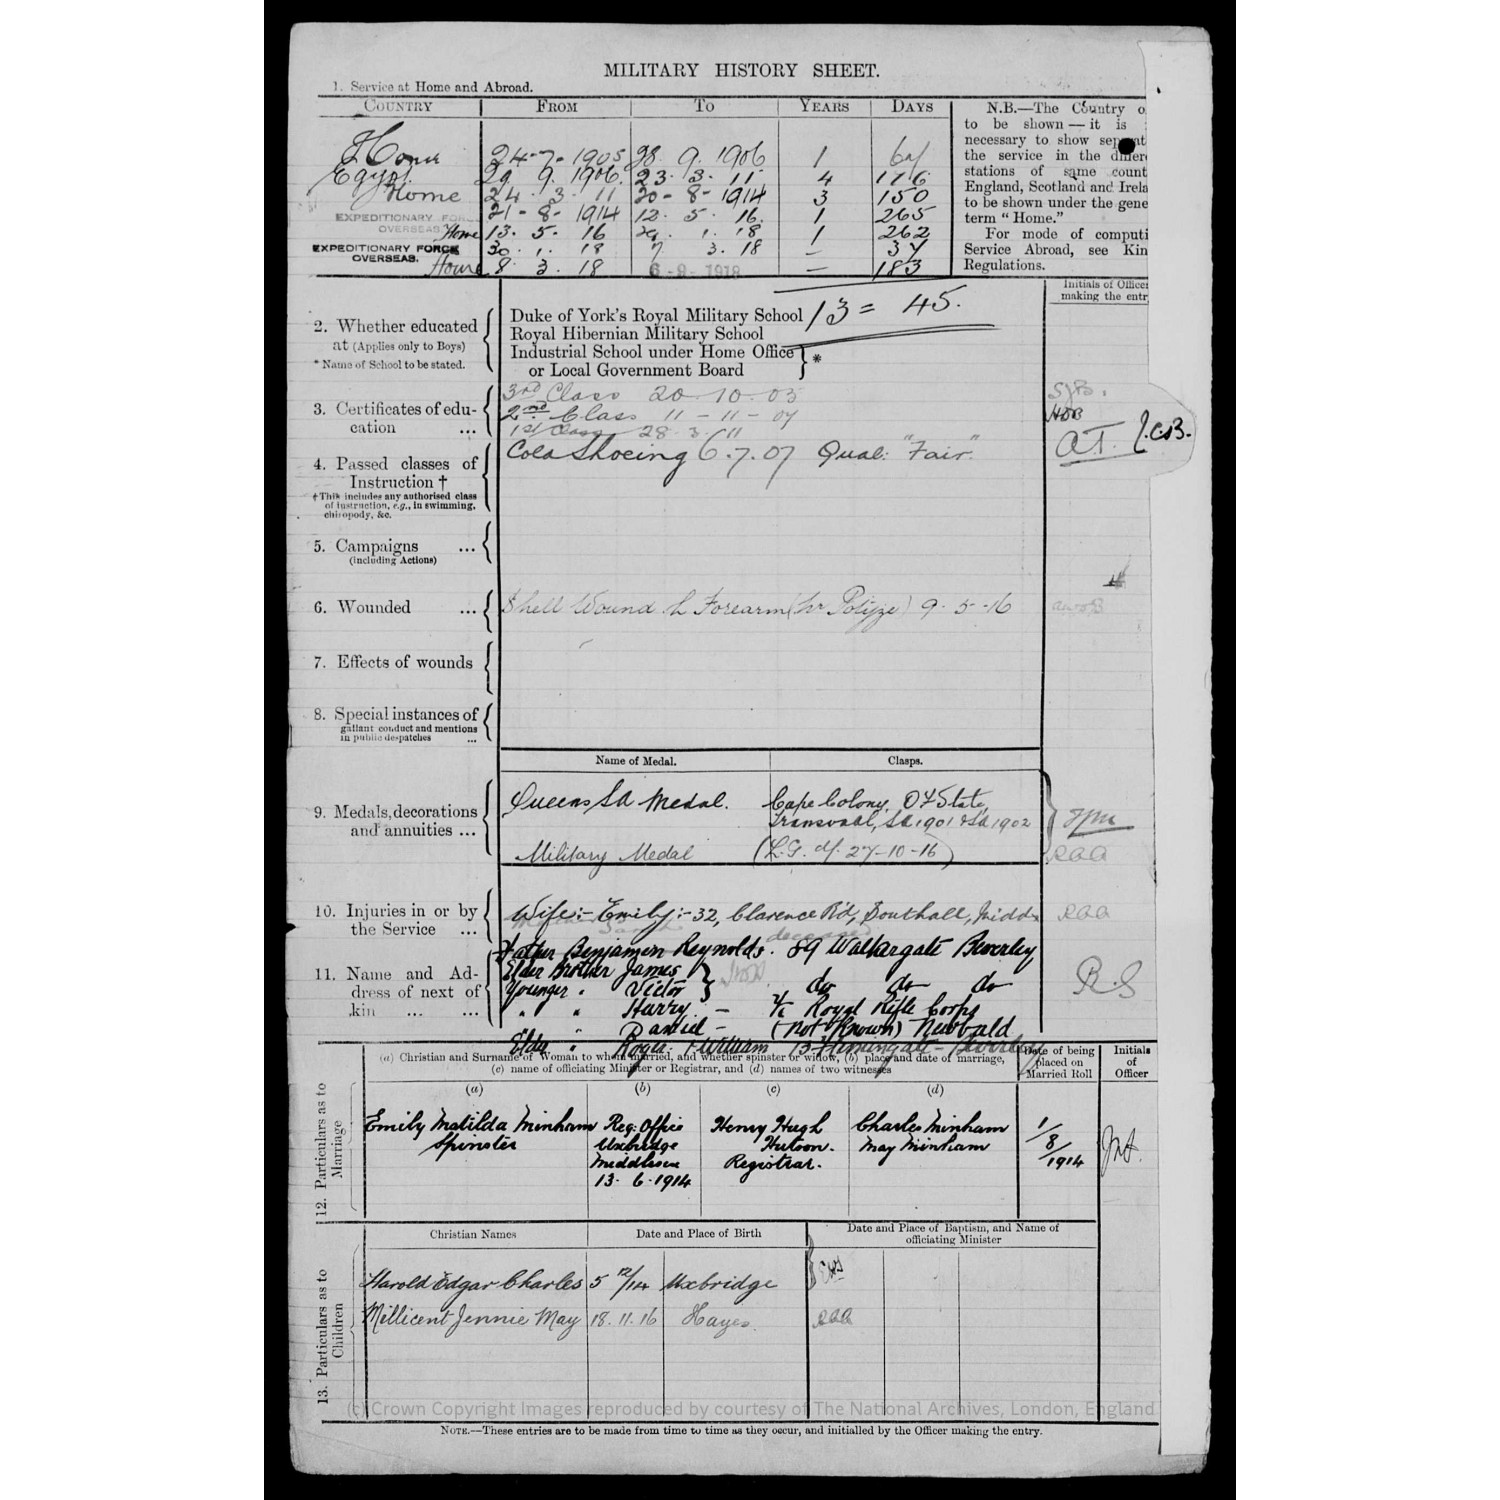 MILITARY HISTORY SHEET.
1. Service at Home and Abroad.
COUNTRY FROM TO YEARS DAYS
Home 24-7-1905 28. 9. 1906 1
Egypt 29. 9. 1906. 23. 3. 11 4 176
Home 24. 3. 11 20-8-1914 3 150
EXPEDITIONARY FORCE OVERSEAS 21-8-1914 12. 5. 16. 1 265
Home 13. 5. 16 29. 1. 18 1 262
EXPEDITIONARY FORCE OVERSEAS. 30. 1. 18 7 3. 18 — 37
Home 8. 3. 18 6-9-1918 — 183
13 = 45.
N.B.—The Country
to be shown — it is
necessary to show
the service in the
stations of same
England, Scotland and
to be shown under the
term "Home."
For mode of
Service Abroad, see
Regulations.
Initials of
making the
2. Whether educated
at (Applies only to Boys)
* Name of School to be stated.
Duke of York's Royal Military School
Royal Hibernian Military School
Industrial School under Home Office
or Local Government Board } *
3. Certificates of edu-
cation ...
3rd Class 20-10-05
2nd Class 11-11-07
1st Class 28. 3. 11
4. Passed classes of
Instruction †
† This includes any authorised class
of instruction, e.g., in swimming,
chiropody, &c.
Cold Shoeing 6.7.07 Qual: "Fair".
A.T. J.C.B.
5. Campaigns ...
(including Actions)
6. Wounded ...
Shell Wound L Forearm 9-5-16
7. Effects of wounds
8. Special instances of
gallant conduct and mentions
in public despatches ...
Name of Medal. Clasps.
9. Medals, decorations
and annuities ...
Queens SA Medal. Cape Colony, OFState,
Transvaal, SA 1901 & SA 1902
Military Medal (L.G. d/. 27-10-16)
10. Injuries in or by
the Service ...
Wife:- Emily:- 32, Clarence Rd, Southall, Midd
deceased
11. Name and Ad-
dress of next of
kin ... ...
Father Benjamin Reynolds. 89 Walkergate Beverley
Elder Brother James
Younger " Victor do do do
" " Harry — Royal Rifle Corps
" " Daniel — (Not Known) Newbald
Elder " Roger William
R.S
12. Particulars as to Marriage
(a) Christian and Surname of Woman to whom married, and whether spinster or widow, (b) place and date of marriage,
(c) name of officiating Minister or Registrar, and (d) names of two witnesses
Date of being placed on Married Roll
Initials of Officer
(a) (b) (c) (d)
Emily Matilda Minham Reg: Office Henry Hugh Charles Minham
Spinster Uxbridge Hutson. May Minham
Middlesex Registrar.
13. 6. 1914
1/8/1914
13. Particulars as to Children
Christian Names Date and Place of Birth Date and Place of Baptism, and Name of officiating Minister
Harold Edgar Charles 5 12/14 Uxbridge
Millicent Jennie May 18. 11. 16 Hayes.
(c) Crown Copyright Images reproduced by courtesy of The National Archives, London, England
NOTE.—These entries are to be made from time to time as they occur, and initialled by the Officer making the entry.